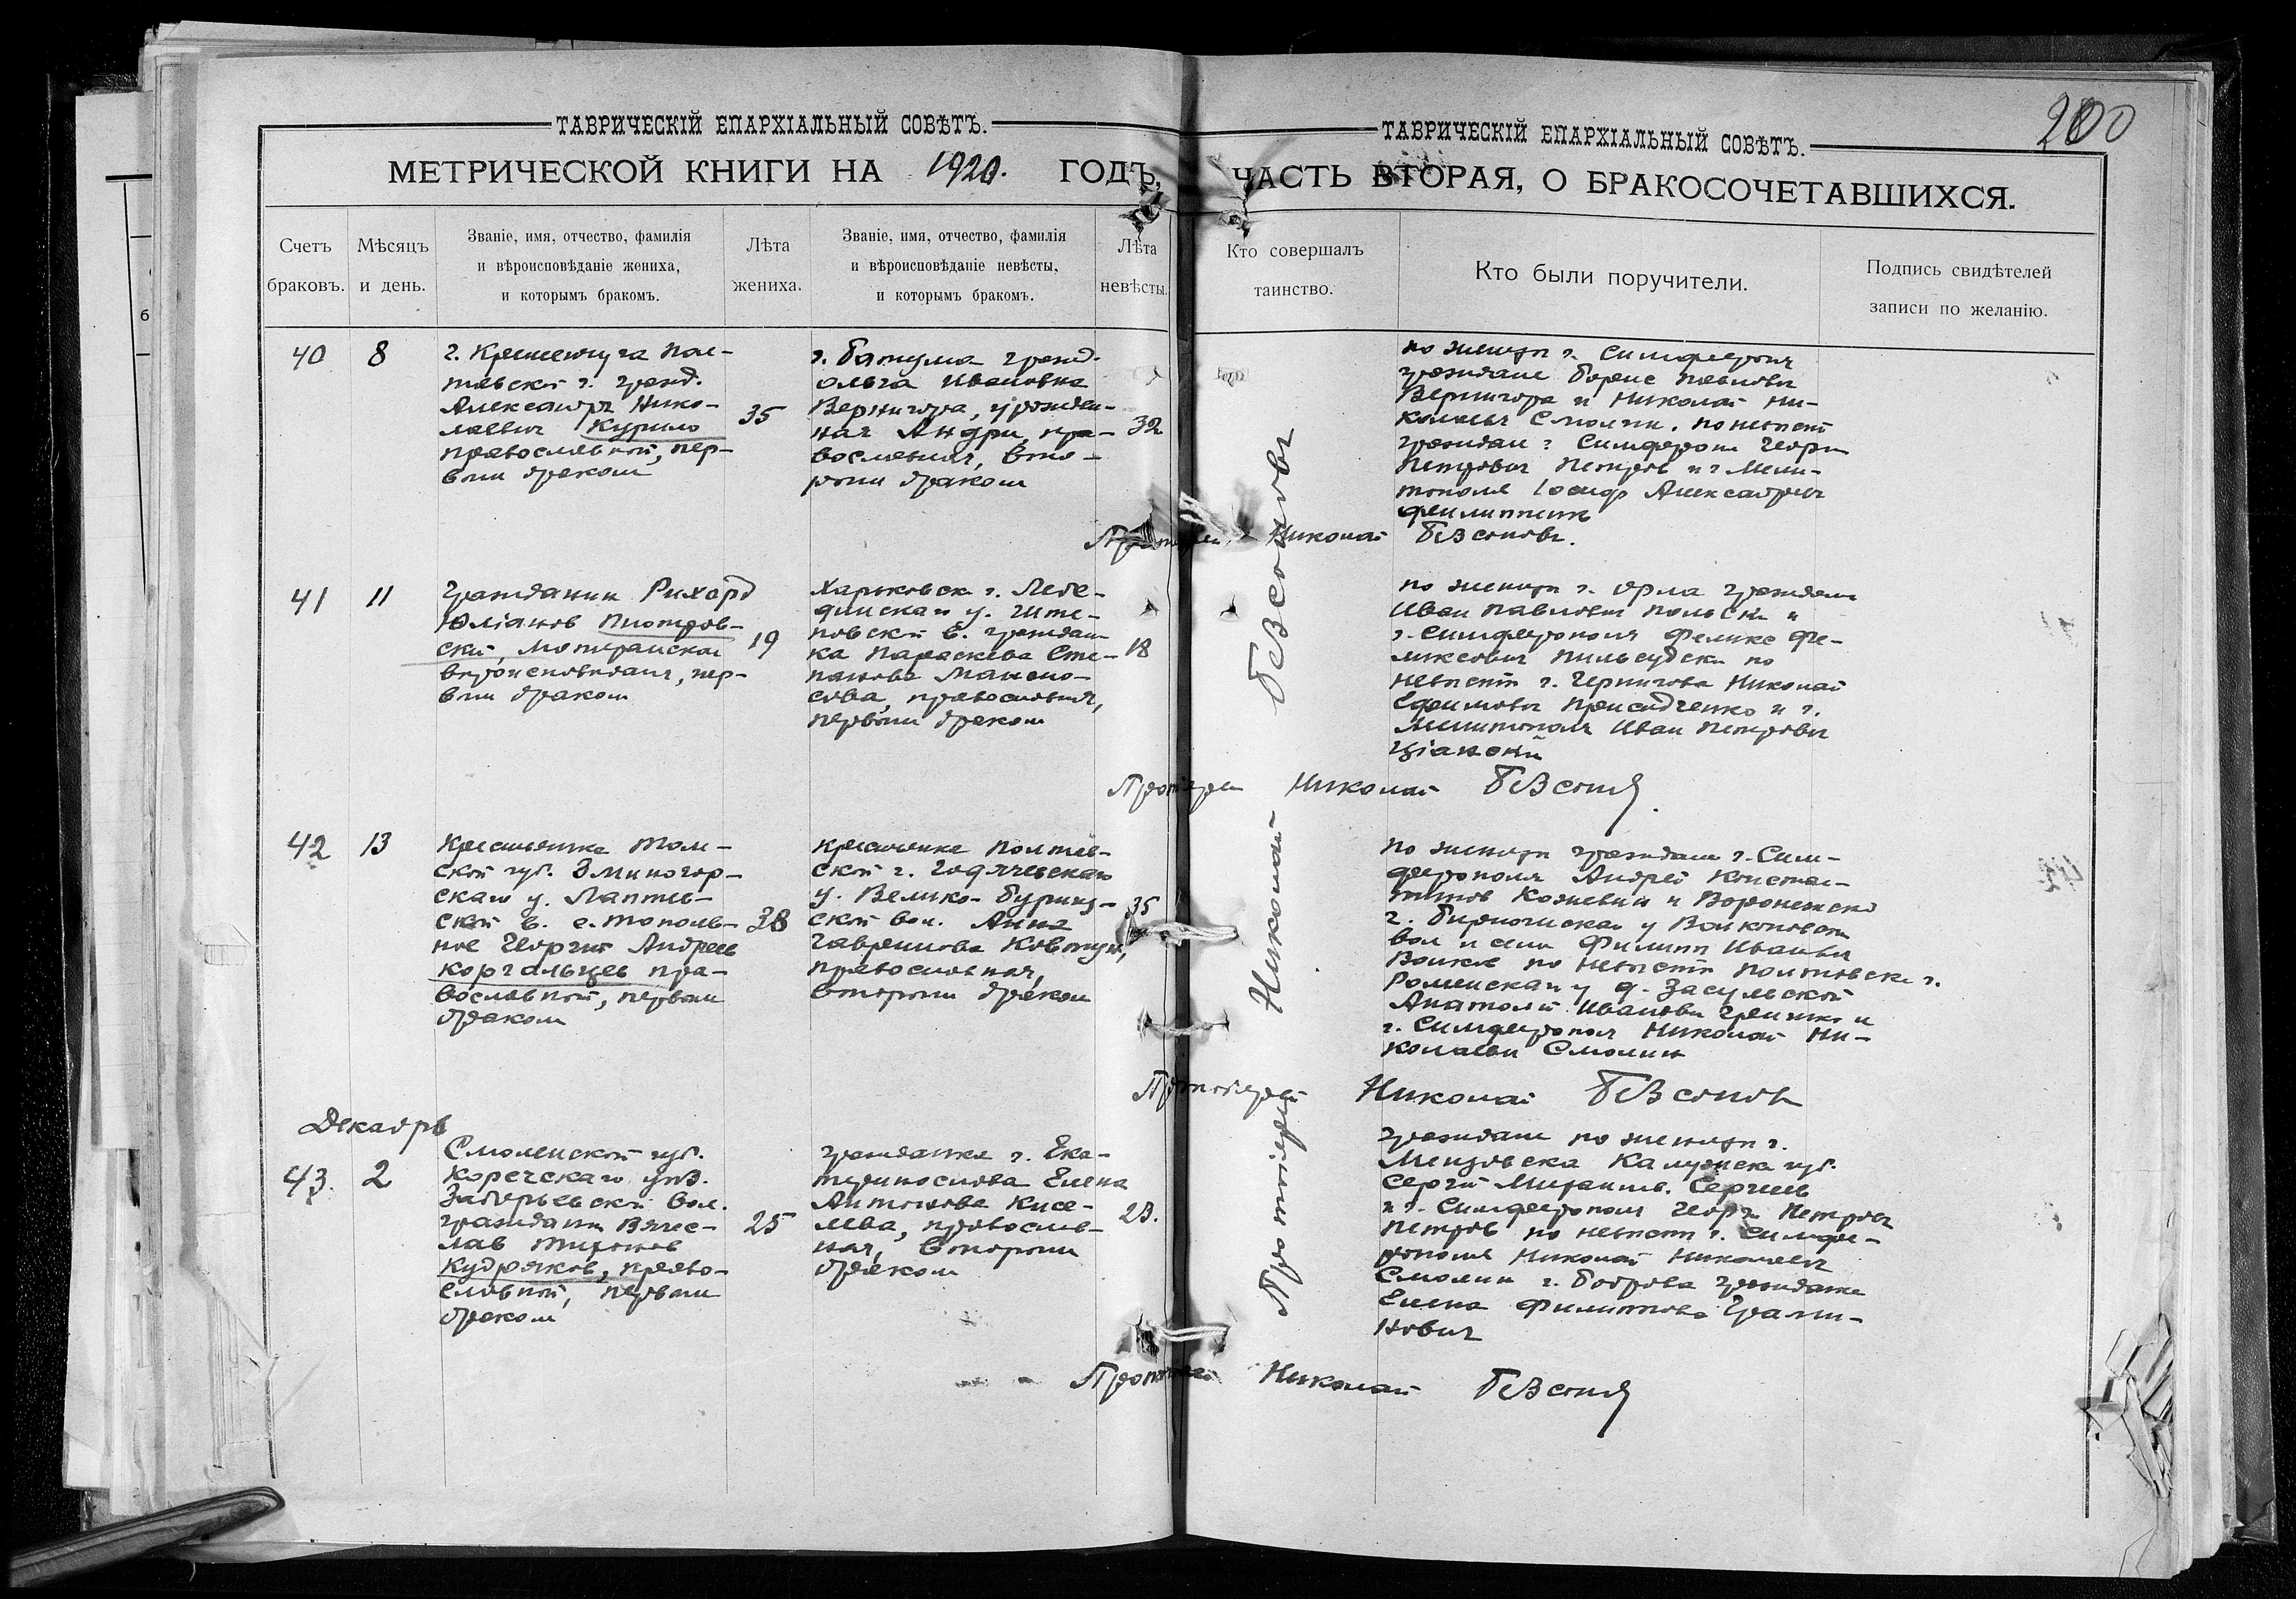 200
ТАВРИЧЕСКІЙ ЕПАРХІАЛЬНЫЙ СОВѢТЪ.
МЕТРИЧЕСКОЙ КНИГИ НА 1920. ГОДЪ,
ТАВРИЧЕСКІЙ ЕПАРХІАЛЬНЫЙ СОВѢТЪ.
ЧАСТЬ ВТОРАЯ, О БРАКОСОЧЕТАВШИХСЯ.
Счетъ
браковъ.
Мѣсяцъ
и день.
Званіе, имя, отчество, фамилія
и вѣроисповѣданіе жениха,
и которымъ бракомъ.
Лѣта
жениха.
Званіе, имя, отчество, фамилія
и вѣроисповѣданіе невѣсты,
и которымъ бракомъ.
Лѣта
невѣсты.
Кто совершалъ
таинство.
Кто были поручители.
Подпись свидѣтелей
записи по желанію.
40
8
г. Кременчуга Пол-
тавской г. гражд.
Александръ Нико-
лаевич Курило
православный, пер-
вым браком
35
г. Батума гражд.
Ольга Ивановна
Вернигора, урожден-
ная Андри, пра-
вославная, вто-
рым браком
32
по жениху г. Симферополя
граждане Борис Павлович
Вернигора и Николай Ни-
колаевич Смолин. по невесте
граждан г. Симферополя Георгий
Петрович Петров и г. Мели-
тополя Іосиф Александрович
Протоіерей Николай Безсоновъ.
41
11
гражданин Рихард
Юліанов Піотров-
ский, лютеранскаго
вероисповедания, пер-
вым браком
19
Харьковск г. Лебе-
динскаго у. Ште-
повской в. граждан-
ка Параскева Сте-
панова
православная,
первым браком
18
по жениху г. Орла граждане
Иван Павлович Польский и
г. Симферополя Феликс Фе-
ликсович Пильсудский по
невесте г. Чернигова Николай
Ефимович и г.
Мелитополя Иван Петрович
Протоіерей Николай Безсонов
42
13
Крестьянин Том-
ской губ. Зминогор-
скаго у.
ской в. с. Тополь-
ное Георгий Андреев
Коргальцев пра-
вославный, первым
браком
38
крестьянка Полтав-
ской г. Гадячевскаго
у. Велико-
ской вол. Анна
Гавриилова Ковтун,
православная,
вторым браком
35
по жениху граждане г. Сим-
ферополя Андрей Констан-
тинов и Воронежской
г. Бирюченскаго у.
вол и села Филипп Иванович
по невесте Полтавской г.
Роменскаго у д. Засульской
Анатолий Иванович и
г. Симферополя Николай Ни-
колаевич Смолин
Протоіерей Николай Безсонов
Декабрь
43.
2
Смоленской губ.
уез.
вол.
гражданин Вячес-
лав Тихонов
Кудряков, право-
славный, первым
браком
25
гражданка г. Ека-
теринослава Елена
Антонова Кисе-
лева, православ-
ная, вторым
браком
23.
граждане по жениху г.
Мещовска Калужск губ.
Сергий Михаилов. Сергеев
и г. Симферополя Георгий Петрович
Петров по невесте г. Симфе-
рополя Николай Николаевич
Смолин г. Боброва гражданка
Елена Филиппова
Протоіерей Николай Безсонов
Протоіерей Николай Безсоновъ